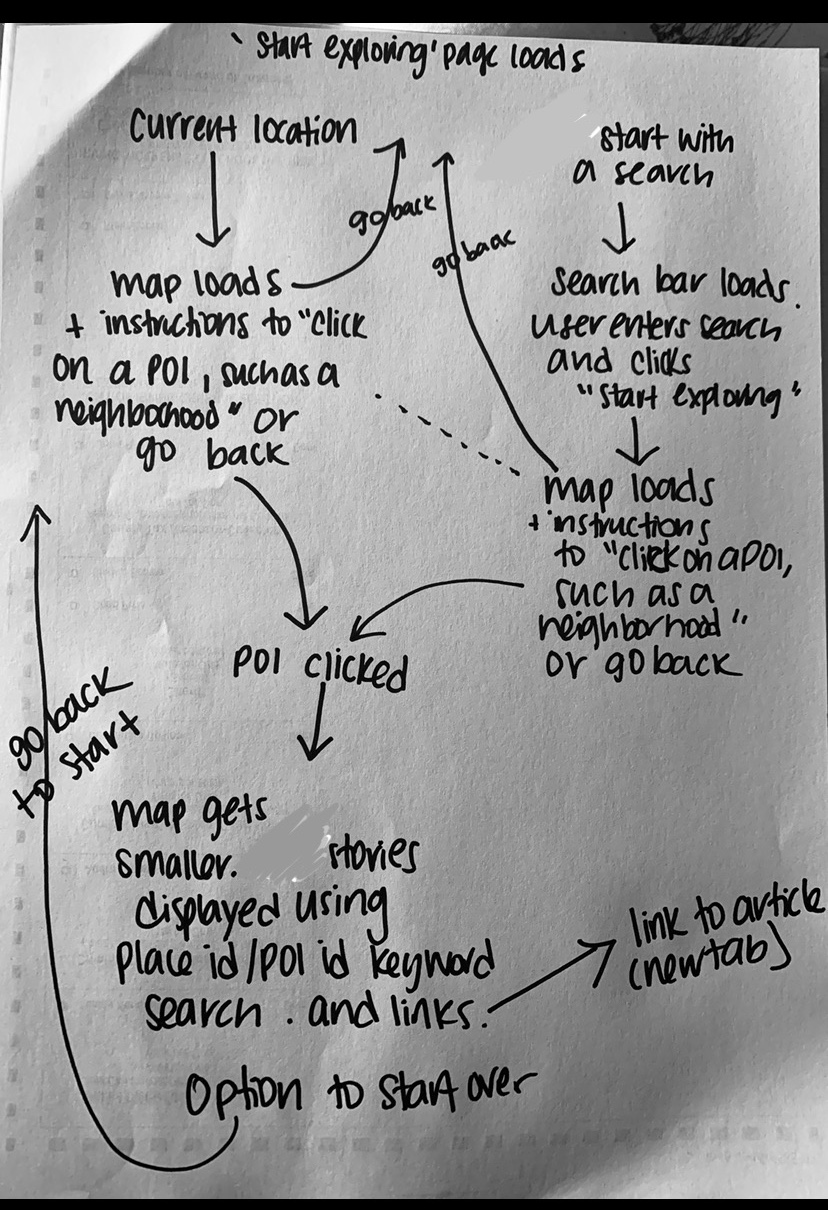 'Start exploring' page loads
Current location
go back
map loads
+ instructions to "Click
on a POI, such as a
neighborhood" or
go back
start with
a search
search bar loads.
user enters search
and clicks
"start exploring"
go baac
map loads
+ instructions
to "click on a POI,
such as a
neighborhood"
or go back
POI clicked
map gets
smaller. stories
displayed using
place id/POI id keyword
search . and links.
link to article
(new tab)
Option to start over
go back
to start